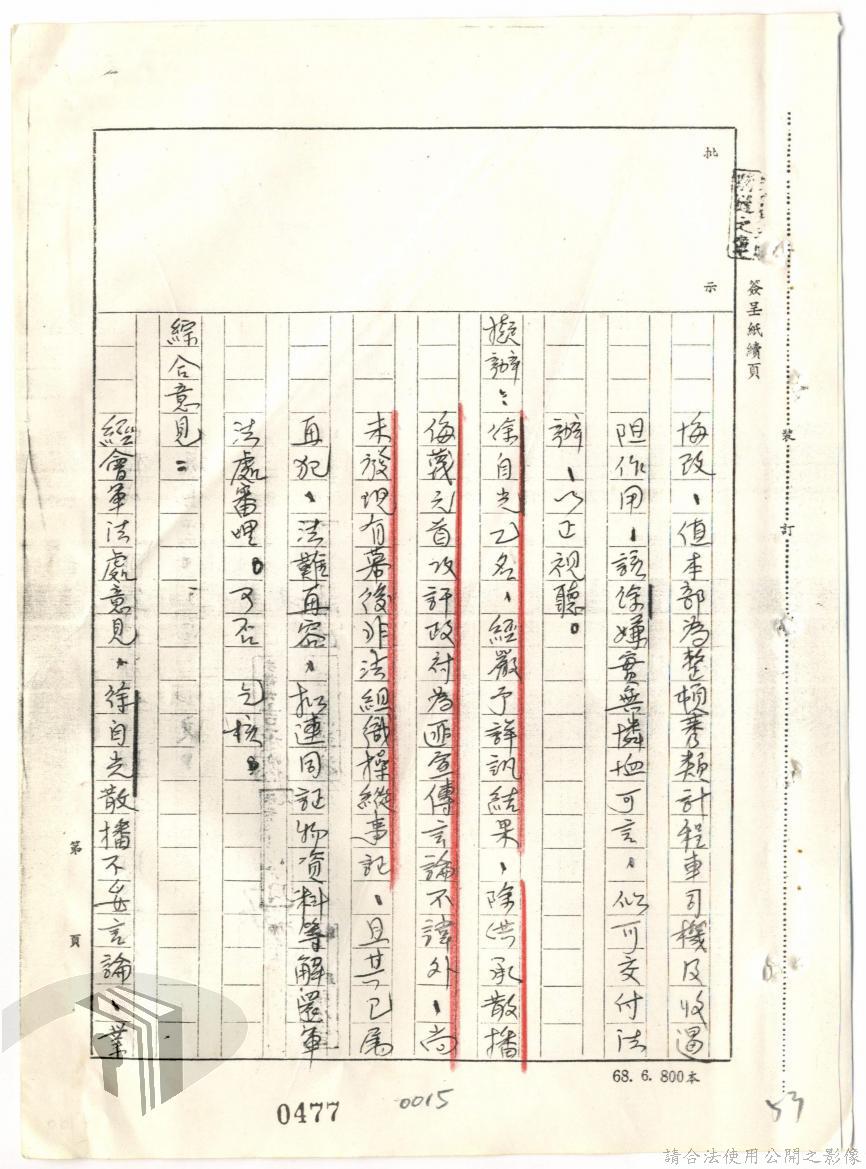 批示
簽呈紙續頁
裝訂
悔改，值本部為整頓莠類計程車司機及收遏
阻作用，該徐嫌實無憐恤可言，似可交付法
辦，以正視聽。
擬辦：徐自光乙名，經嚴予詳訊結果，除供承散播
侮蔑元首攻訐政府為匪宣傳言論不諱外，尚
未發現有幕後非法組織操縱事記，且其已屬
再犯，法難再容，擬連同証物資料等解送軍
法處審理。可否 乞核。
綜合意見：
經會軍法處意見，徐自光散播不妥言論，業
第 頁
68. 6. 800本
0477
0015
請合法使用公開之影像